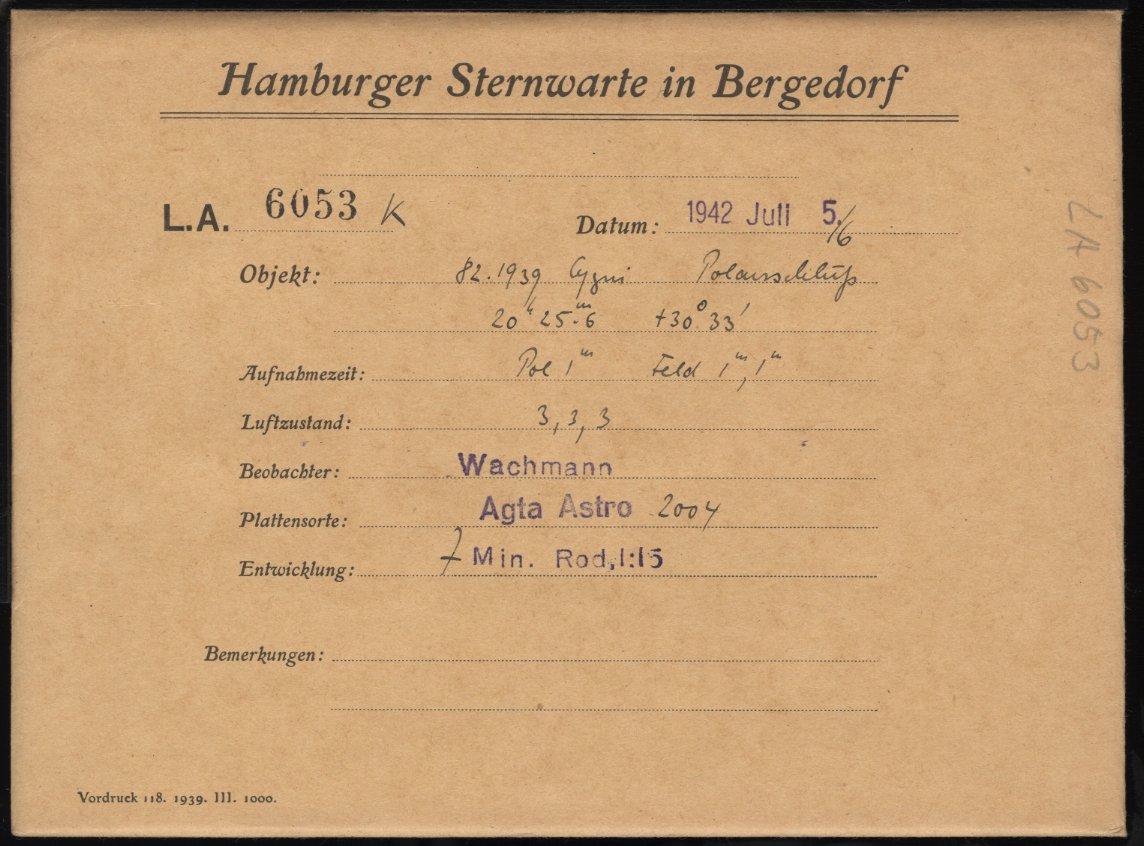 Hamburger Sternwarte in Bergedorf
L.A. 6053 K
Datum: 1942 Juli 5./6
Objekt: 82.1939 Cygni Polanschluß
20ʰ 25ᵐ.6 +30° 33'
Aufnahmezeit: Pol 1ᵐ Feld 1ᵐ, 1ᵐ
Luftzustand: 3, 3, 3
Beobachter: Wachmann
Plattensorte: Agfa Astro 2004
Entwicklung: 7 Min. Rod, 1:15
Bemerkungen:
Vordruck 118. 1939. III. 1000.
LA 6053